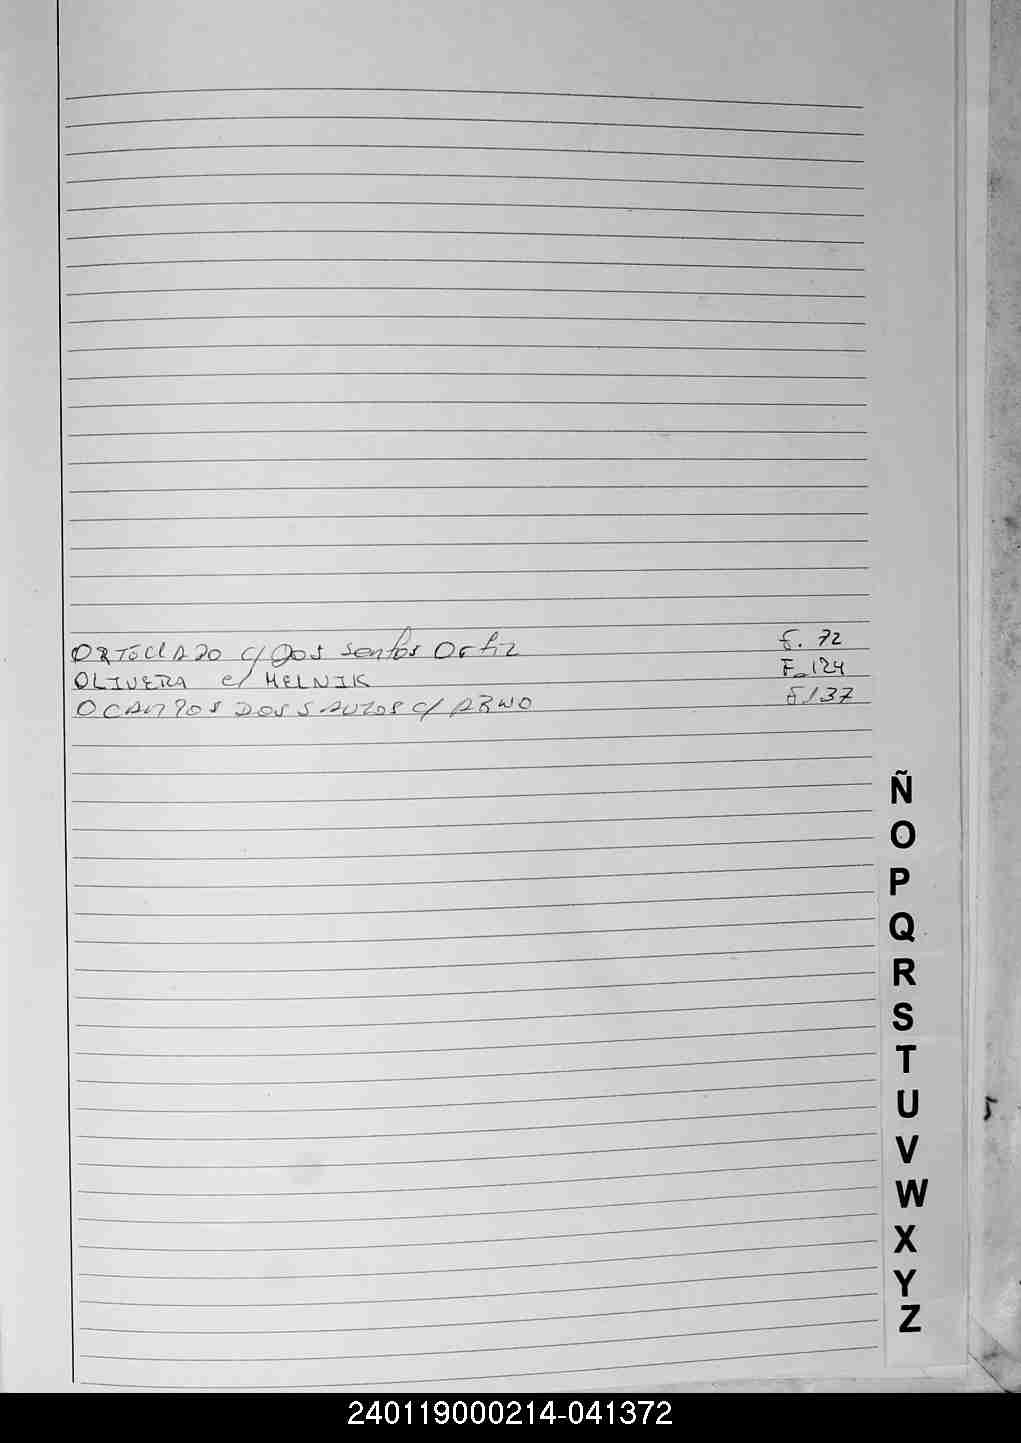 ORTELLADO c/ Dos Santos Ortiz f. 72
OLIVERA c/ MELNIK F. 124
OCAMPOS DOS SANTOS c/ ARNO F. 137
Ñ
O
P
Q
R
S
T
U
V
W
X
Y
Z
240119000214-041372